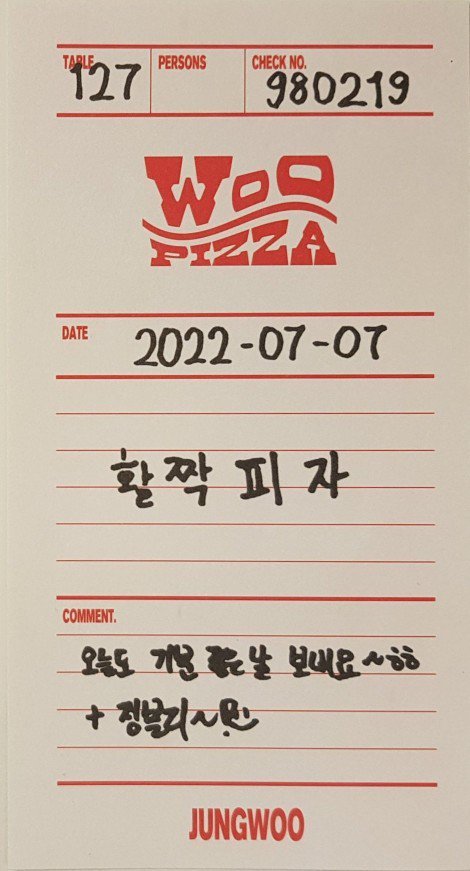 TABLE PERSONS CHECK NO.
127 980219
WOO
PIZZA
DATE 2022-07-07
활짝 피자
COMMENT.
오늘도 기분 날 보내요~ㅎㅎ
+ 정브리~
JUNGWOO